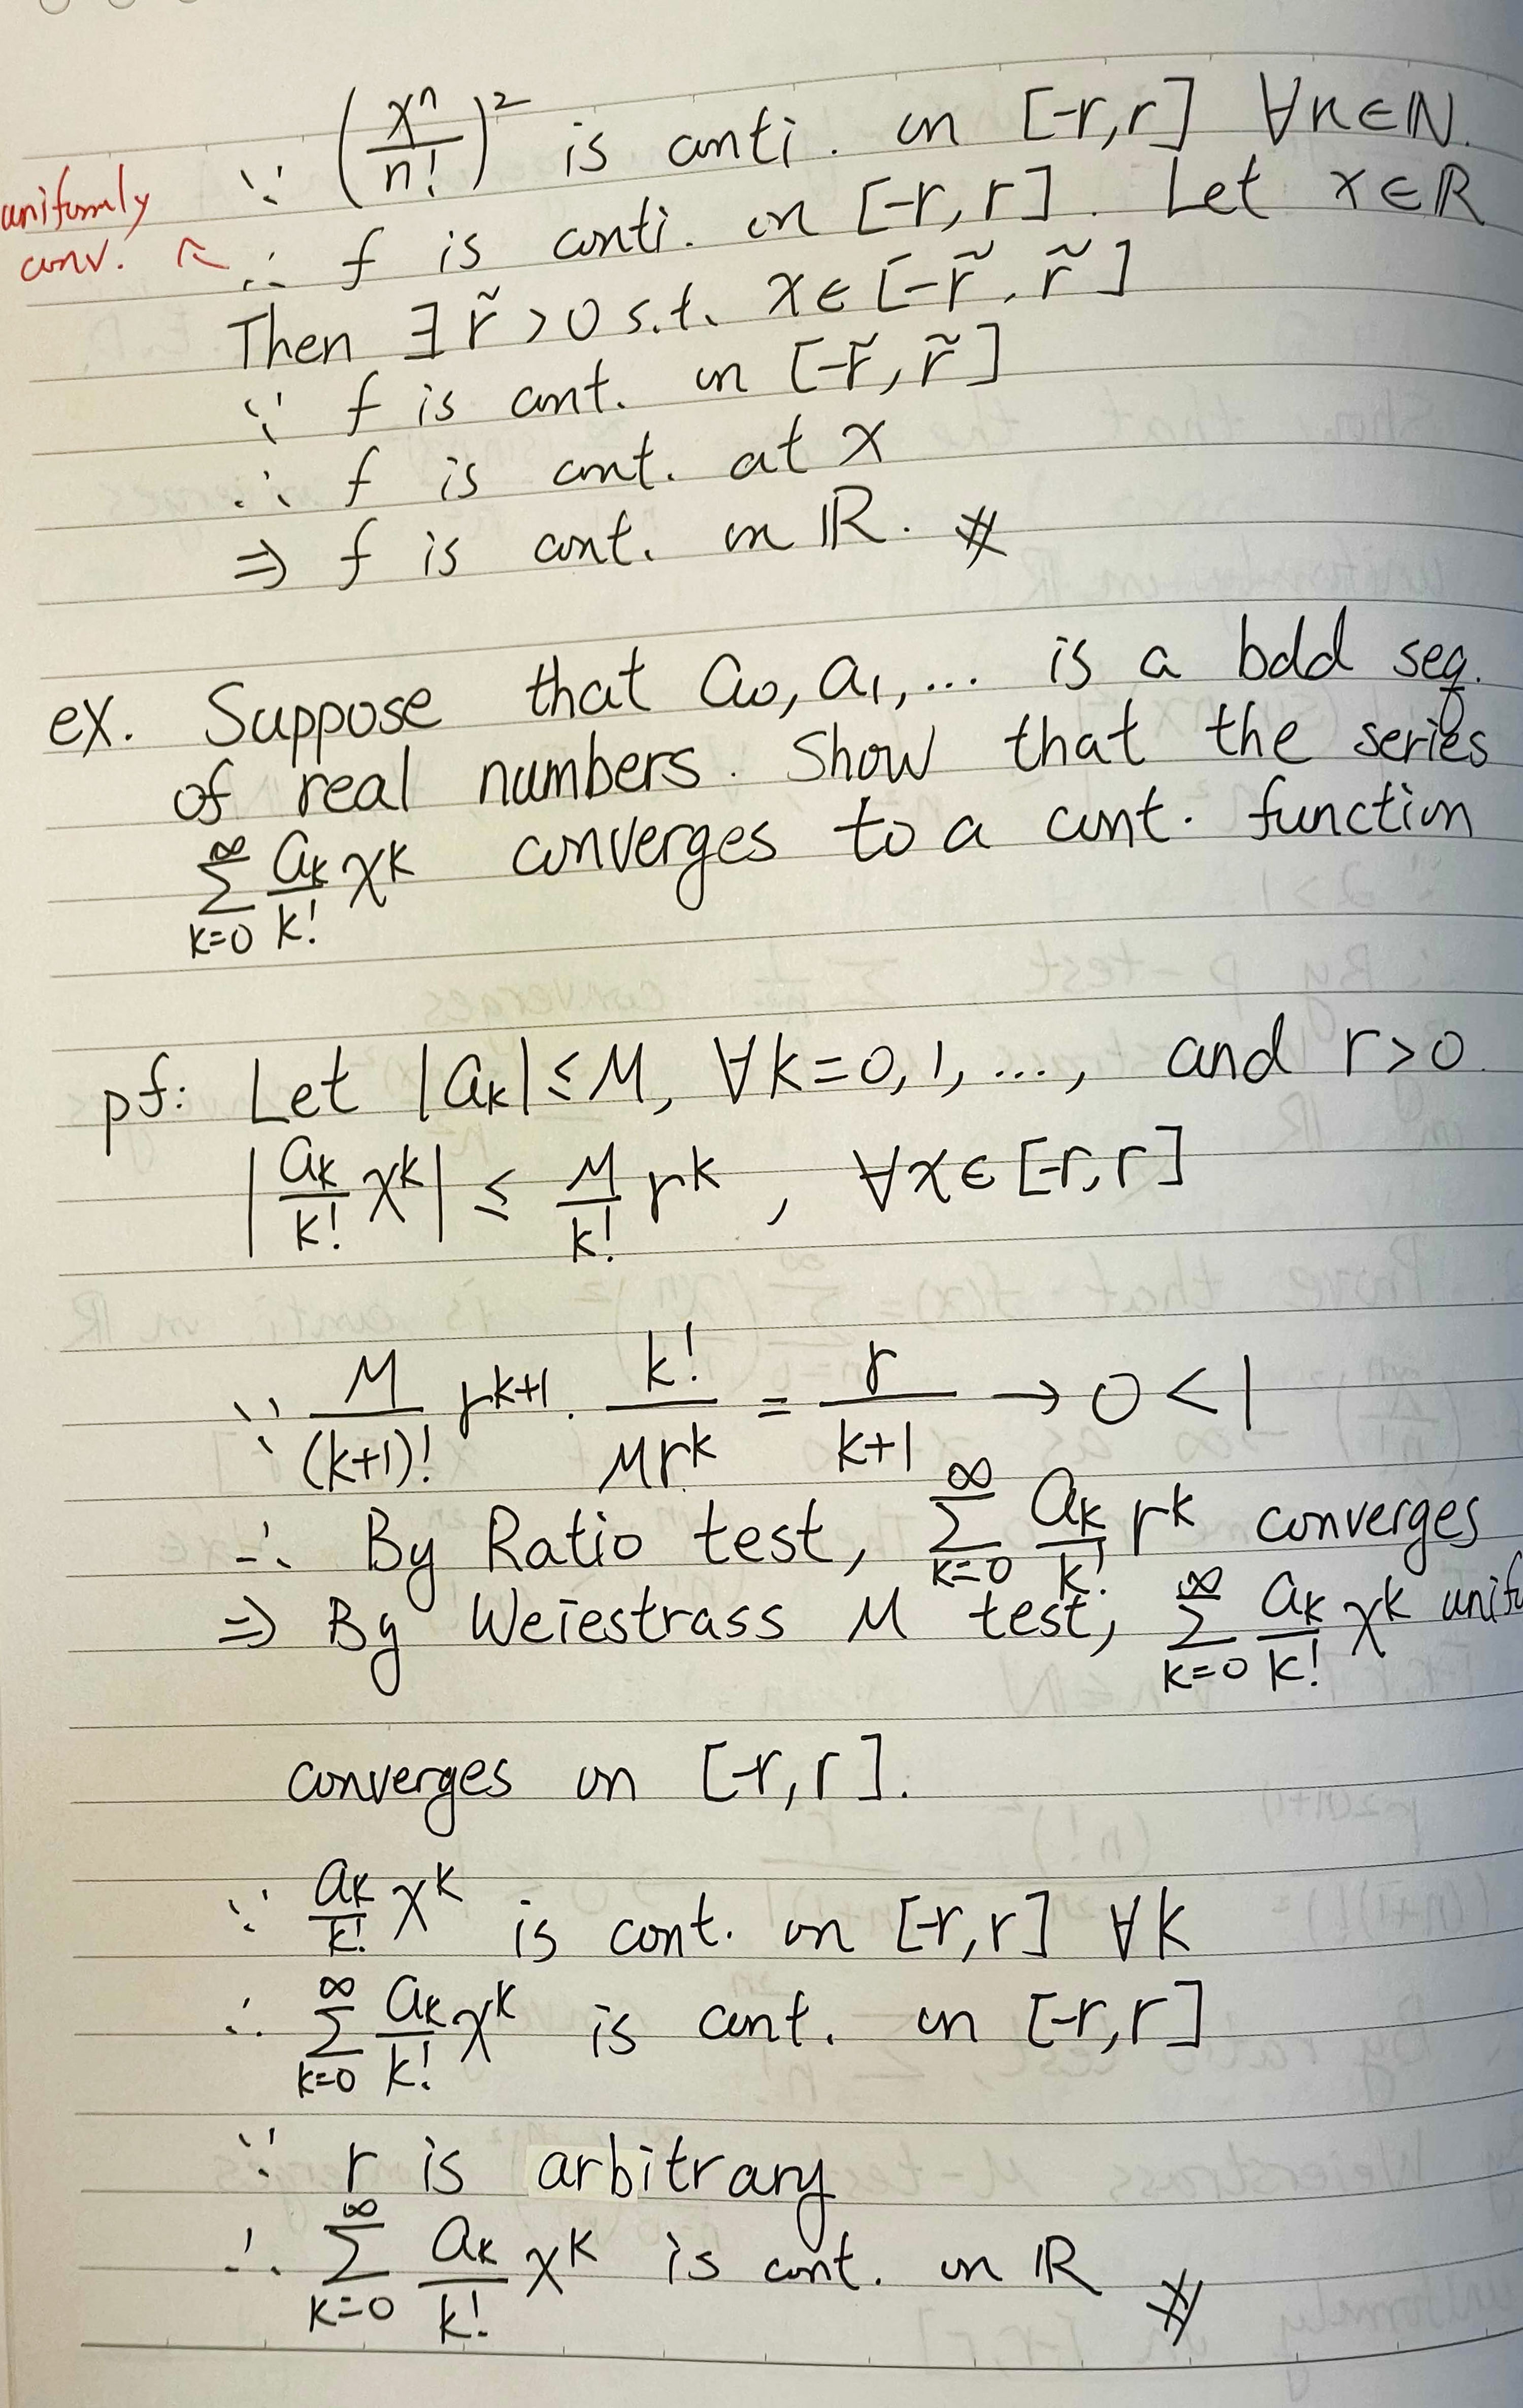 ∵ (xⁿ/n!)² is conti. on [-r,r] ∀n∈ℕ.
uniformly
conv. ↖ ∴ f is conti. on [-r,r]. Let x∈ℝ
Then ∃ r̃>0 s.t. x∈[-r̃,r̃]
∵ f is cont. on [-r̃,r̃]
∴ f is cont. at x
⇒ f is cont. on ℝ. #
ex. Suppose that a₀,a₁,... is a bdd seq.
of real numbers. Show that the series
∑_{k=0}^{∞} a_k/k! x^k converges to a cont. function
pf: Let |a_k|≤M, ∀k=0,1,..., and r>0.
|a_k/k! x^k| ≤ M/k! r^k, ∀x∈[-r,r]
∵ M/(k+1)! r^{k+1} · k!/(Mr^k) = r/(k+1) → 0 < 1
∴ By Ratio test, ∑_{k=0}^{∞} a_k/k! r^k converges
⇒ By Weiestrass M test, ∑_{k=0}^{∞} a_k/k! x^k unifo
converges on [-r,r].
∵ a_k/k! x^k is cont. on [-r,r] ∀k
∴ ∑_{k=0}^{∞} a_k/k! x^k is cont. on [-r,r]
∵ r is arbitrary
∴ ∑_{k=0}^{∞} a_k/k! x^k is cont. on ℝ #